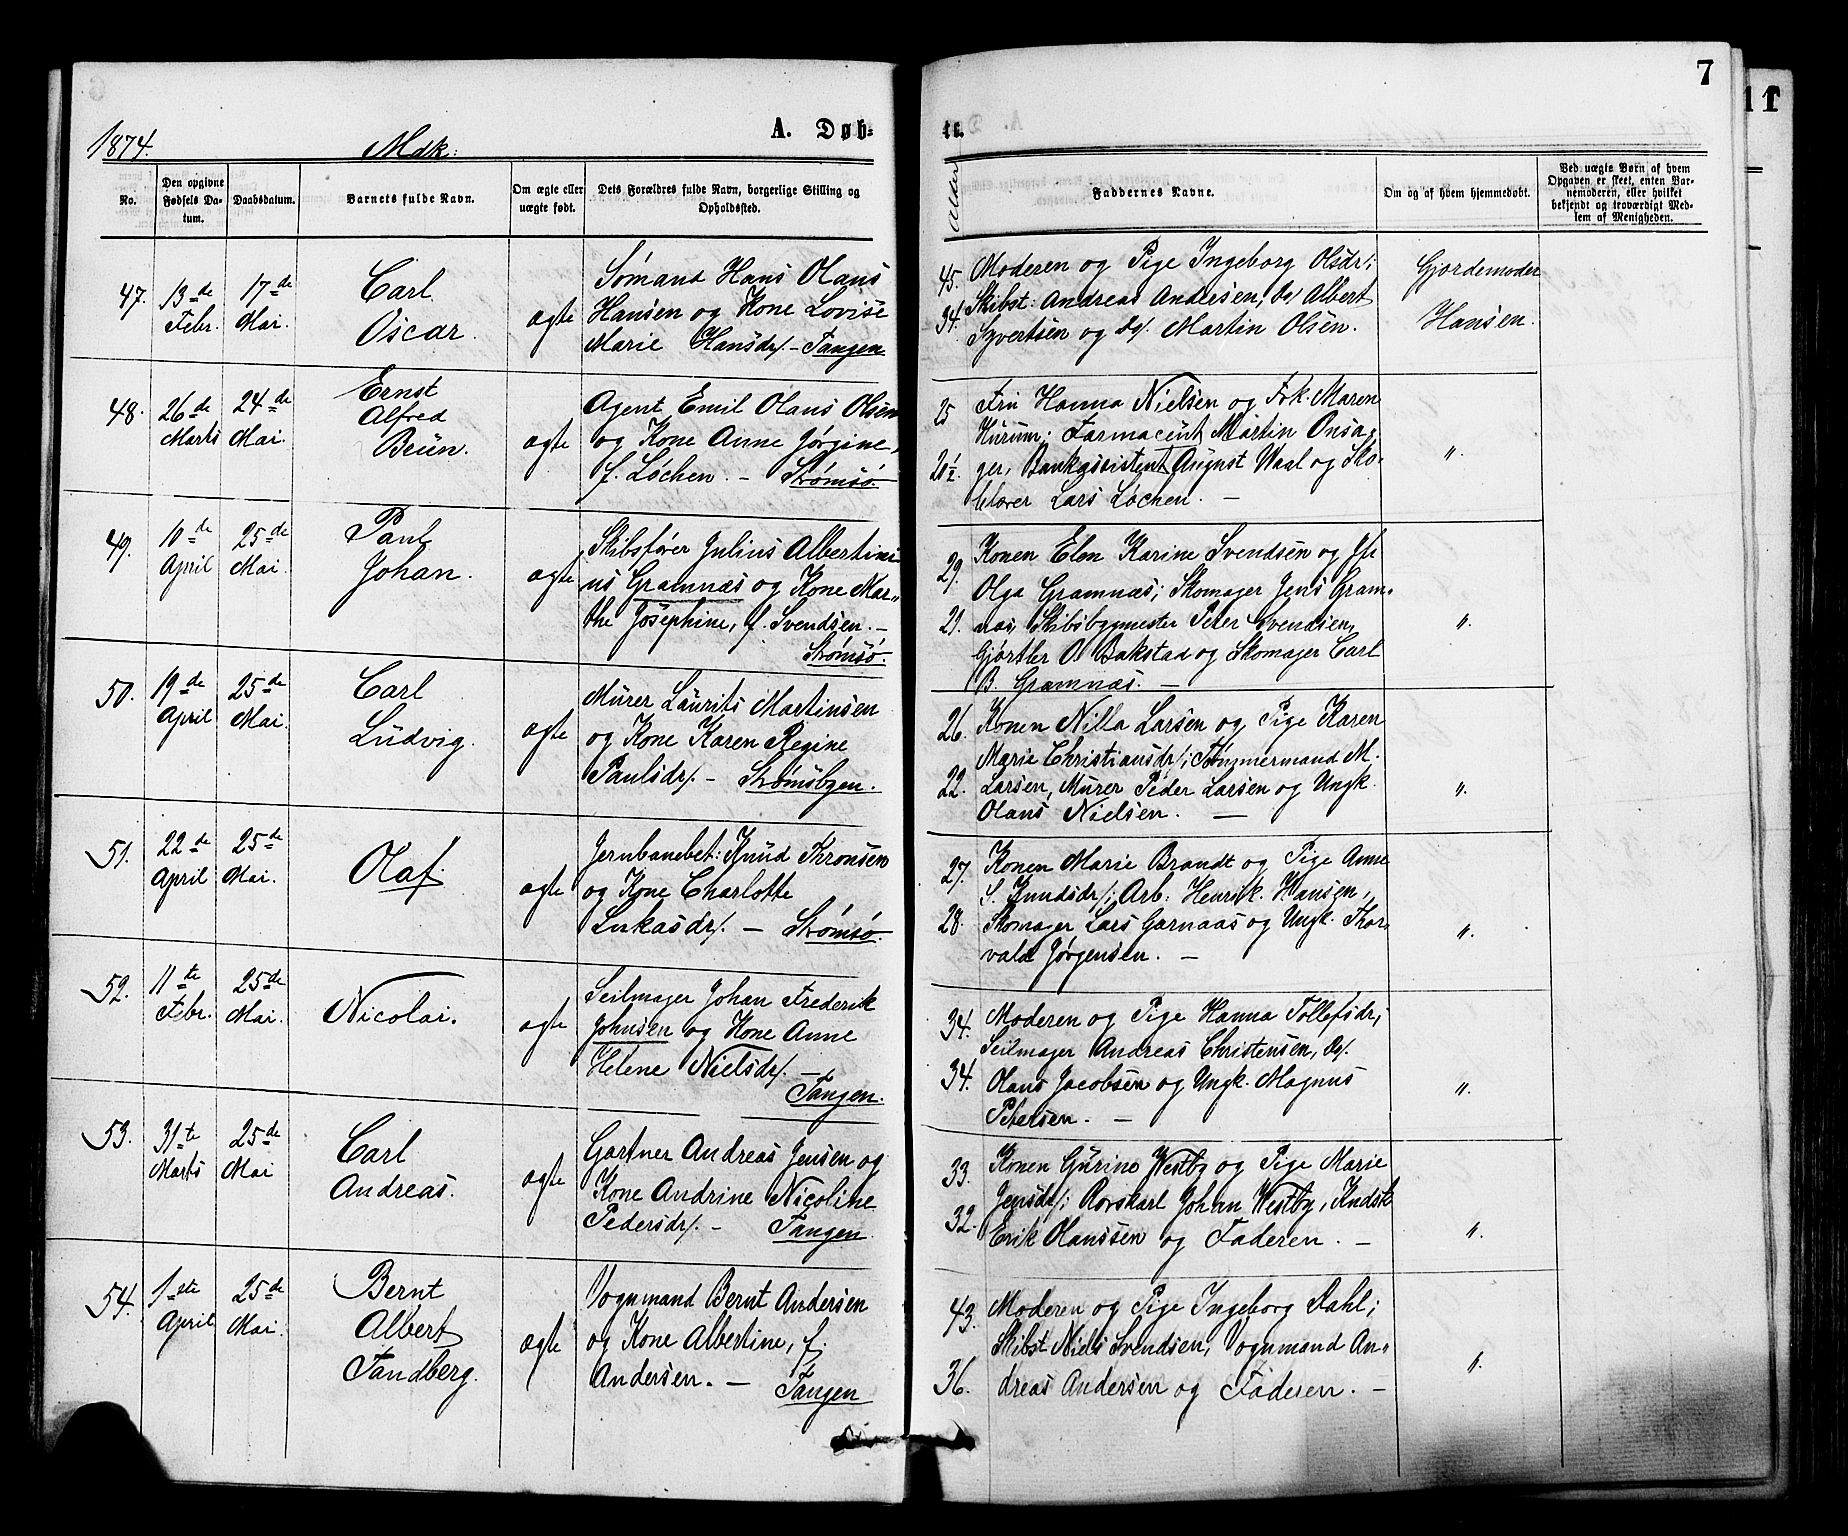 7
11
1874.
Mdk:
A. Døb-
te.
No.
Den opgivne Fødsels Da-
tum.
Daabsdatum.
Barnets fulde Navn.
Om ægte eller
uægte født.
Dets Forældres fulde Navn, borgerlige Stilling og
Opholdssted.
Alder
Faddernes Navne.
Om og af hvem hjemmedøbt.
Ved uægte Børn af hvem
Opgaven er skeet, enten Bar-
nemoderen, eller hvilket
bekjendt og troværdigt Med-
lem af Menigheden.
47. 13de Febr. 17de Mai. Carl Oscar ægte
Sømand Hans Olaus
Hansen og Kone Lovise
Marie Hansdr/. - Tangen
45. 34.
Moderen og Pige Ingeborg Olsdr/;
Skibst: Andreas Andresen, do/ Albert
Syvertsen og do/. Martin Olsen.
Gjordemoder
Hansen.
48. 26de Marts 24de Mai. Ernst Alfred Brün. ægte
Agent Emil Olaus Olsen
og Kone Anne Jørgine,
f. Løchen. - Strømsø.
25 21½
Fru Hanna Nielsen og Frk. Maren
Kürum; Farmaceut Martin Onsa-
ger, Bankassistent August Waal og Sko-
lelærer Lars Løchen. -
"
49. 10de April 25de Mai. Paul Johan. ægte
Skibsfører Julius Albertini-
us Gramnæs og Kone Mar-
the Josephine, f. Svendsen. -
Strømsø.
29. 29.
Konen Elen Karine Svendsen og
Olga Gramnæs; Skomager Jens Gram-
næs, Skibsbygmester Peter Svendsen,
Gjørtler O. Bakstad og Skomager Carl
B. Gramnæs. -
"
50. 19de April 25de Mai. Carl Ludvig. ægte
Murer Laurits Martinsen
og Kone Karen Regine
Paulsdr/. - Strømsbyen.
26. 22.
Konen Nilla Larsen og Pige Karen
Marie Christiansdr/; Tømmermand M.
Larsen, Murer Peder Larsen og Ungk.
Olaus Nielsen. -
"
51. 22de April 25de Mai. Olaf. ægte
Jernbanebet: Knud Thronsen
og Kone Charlotte
Lukasdr/. - Strømsø.
27. 28.
Konen Marie Brandt og Pige Anne
S. Knudsdr/; Arb: Henrik Hansen,
Skomager Lars Garnaas og Ungk. Thor-
vald Jørgensen. -
"
52. 11te Febr. 25de Mai. Nicolai. ægte
Seilmager Johan Frederik
Johnsen og Kone Anne
Helene Nielsdr/. -
Tangen.
34. 34.
Moderen og Pige Hanna Tollefsdr;
Seilmager Andreas Christensen, do/.
Olaus Jacobsen og Ungk. Magnus
Petersen. -
"
53. 31te Marts 25de Mai Carl Andreas. ægte
Gartner Andreas Jensen og
Kone Andrine Nicoline
Pedersdr/. - Tangen.
33. 32.
Konen Gurine Westby og Pige Marie
Jensdr/; Rorskarl Johan Westby, Kudsk
Erik Olaussen og Faderen. -
"
54. 1ste April 25de Mai. Bernt Albert Tandberg. ægte
Vognmand Bernt Andersen
og Kone Albertine, f.
Andersen. - Tangen
43. 36.
Moderen og Pige Ingeborg Dahl;
Skibst Niels Svendsen, Vognmand An-
dreas Andersen og Faderen. -
"